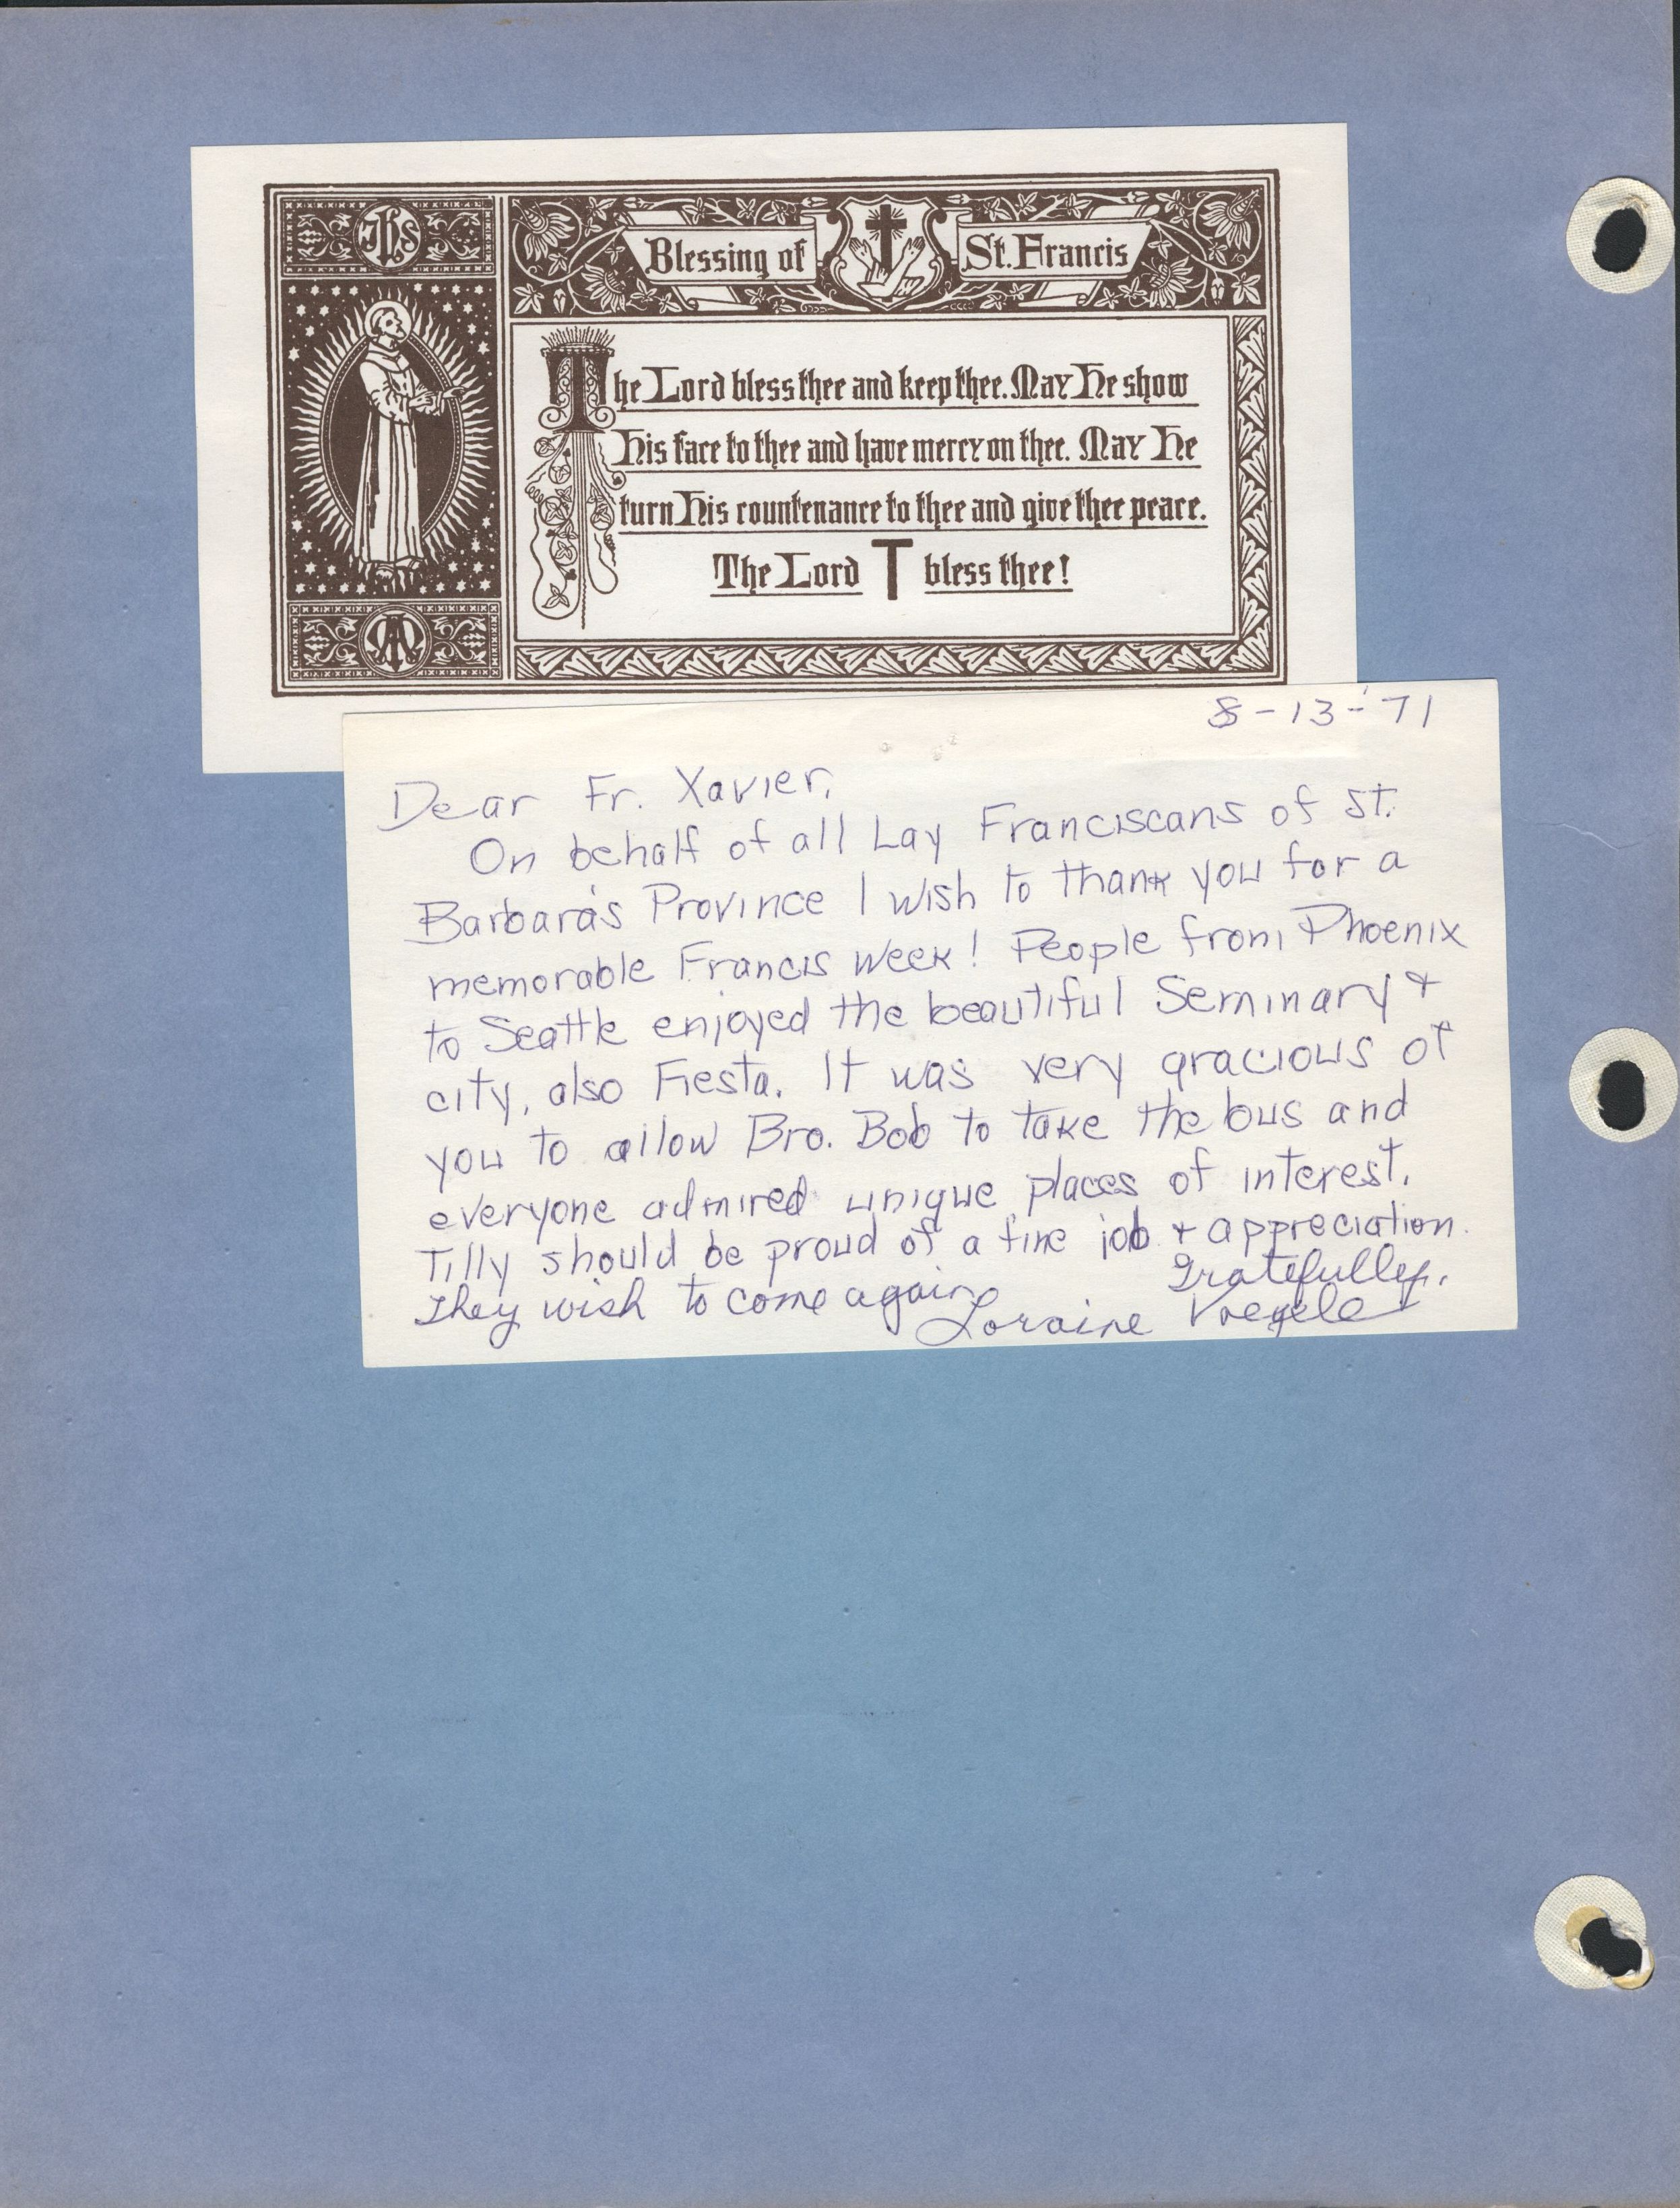 JhS
Blessing of St. Francis
The Lord bless thee and keep thee. May He show
His face to thee and have mercy on thee. May He
turn His countenance to thee and give thee peace.
The Lord T bless thee!
8-13-'71
Dear Fr. Xavier,
On behalf of all Lay Franciscans of St.
Barbara's Province I wish to thank you for a
memorable Francis Week! People from Phoenix
to Seattle enjoyed the beautiful Seminary &
city, also Fiesta. It was very gracious of
you to allow Bro. Bob to take the bus and
everyone admired unique places of interest.
Tilly should be proud of a fine job & appreciation.
They wish to come again. Gratefully,
Loraine Voegele